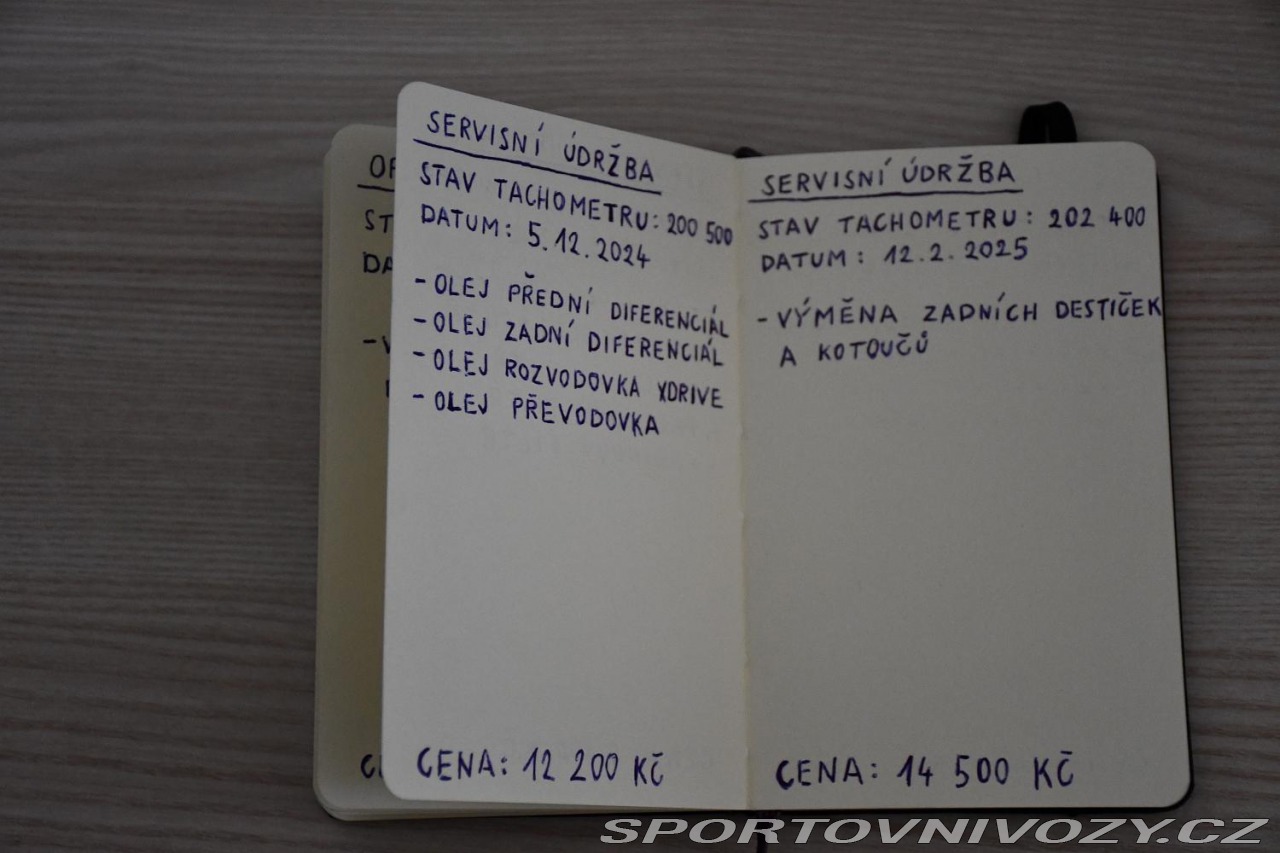 SERVISNÍ ÚDRŽBA
STAV TACHOMETRU: 200 500
DATUM: 5.12.2024
- OLEJ PŘEDNÍ DIFERENCIÁL
- OLEJ ZADNÍ DIFERENCIÁL
- OLEJ ROZVODOVKA XDRIVE
- OLEJ PŘEVODOVKA
CENA: 12 200 KČ
SERVISNÍ ÚDRŽBA
STAV TACHOMETRU: 202 400
DATUM: 12.2.2025
- VÝMĚNA ZADNÍCH DESTIČEK
A KOTOUČŮ
CENA: 14 500 KČ
SPORTOVNIVOZY.CZ